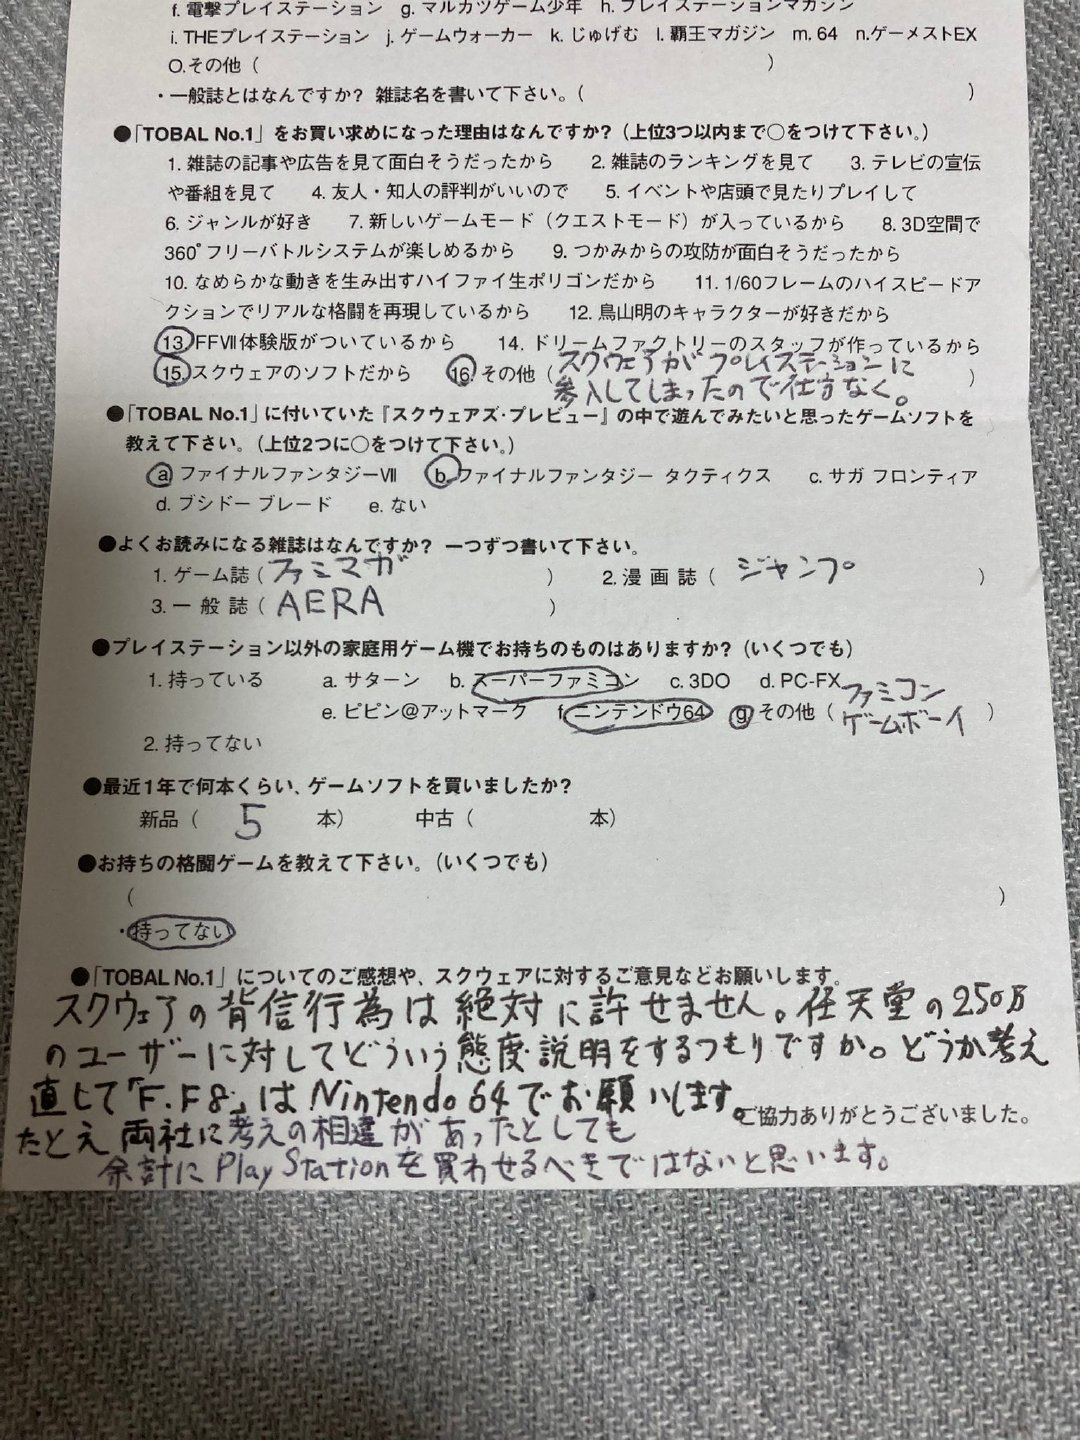 f. 電撃プレイステーション　g. マルカツゲーム少年　h. プレイステーションマガジン
i. THEプレイステーション　j. ゲームウォーカー　k. じゅげむ　l. 覇王マガジン　m. 64　n.ゲーメストEX
O.その他（　　　）
・一般誌とはなんですか? 雑誌名を書いて下さい。(　　　)
●「TOBAL No.1」をお買い求めになった理由はなんですか?（上位3つ以内まで○をつけて下さい。）
1. 雑誌の記事や広告を見て面白そうだったから　2. 雑誌のランキングを見て　3. テレビの宣伝
や番組を見て　4. 友人・知人の評判がいいので　5. イベントや店頭で見たりプレイして
6. ジャンルが好き　7. 新しいゲームモード（クエストモード）が入っているから　8. 3D空間で
360°フリーバトルシステムが楽しめるから　9. つかみからの攻防が面白そうだったから
10. なめらかな動きを生み出すハイファイ生ポリゴンだから　11. 1/60フレームのハイスピードア
クションでリアルな格闘を再現しているから　12. 鳥山明のキャラクターが好きだから
13. FFⅦ体験版がついているから　14. ドリームファクトリーのスタッフが作っているから
15. スクウェアのソフトだから　16. その他（スクウェアがプレイステーションに
参入してしまったので仕方なく。）
●「TOBAL No.1」に付いていた『スクウェアズ・プレビュー』の中で遊んでみたいと思ったゲームソフトを
教えて下さい。（上位2つに○をつけて下さい。）
a. ファイナルファンタジーⅦ　b. ファイナルファンタジー タクティクス　c. サガ フロンティア
d. ブシドー ブレード　e. ない
●よくお読みになる雑誌はなんですか?　一つずつ書いて下さい。
1. ゲーム誌（ファミマガ）　2. 漫画誌（ジャンプ）
3. 一般誌（AERA）
●プレイステーション以外の家庭用ゲーム機でお持ちのものはありますか?（いくつでも）
1. 持っている　a. サターン　b. スーパーファミコン　c. 3DO　d. PC-FX
e. ピピン@アットマーク　f. ニンテンドウ64　g. その他（ファミコン
ゲームボーイ）
2. 持ってない
●最近1年で何本くらい、ゲームソフトを買いましたか?
新品（ 5 本）　中古（　　本）
●お持ちの格闘ゲームを教えて下さい。（いくつでも）
（　　　）
・持ってない
●「TOBAL No.1」についてのご感想や、スクウェアに対するご意見などお願いします。
スクウェアの背信行為は絶対に許せません。任天堂の250万
のユーザーに対してどういう態度説明をするつもりですか。どうか考え
直して「F.F8」はNintendo64でお願いします。
ご協力ありがとうございました。
たとえ両社に考えの相違があったとしても
余計にPlayStationを買わせるべきではないと思います。